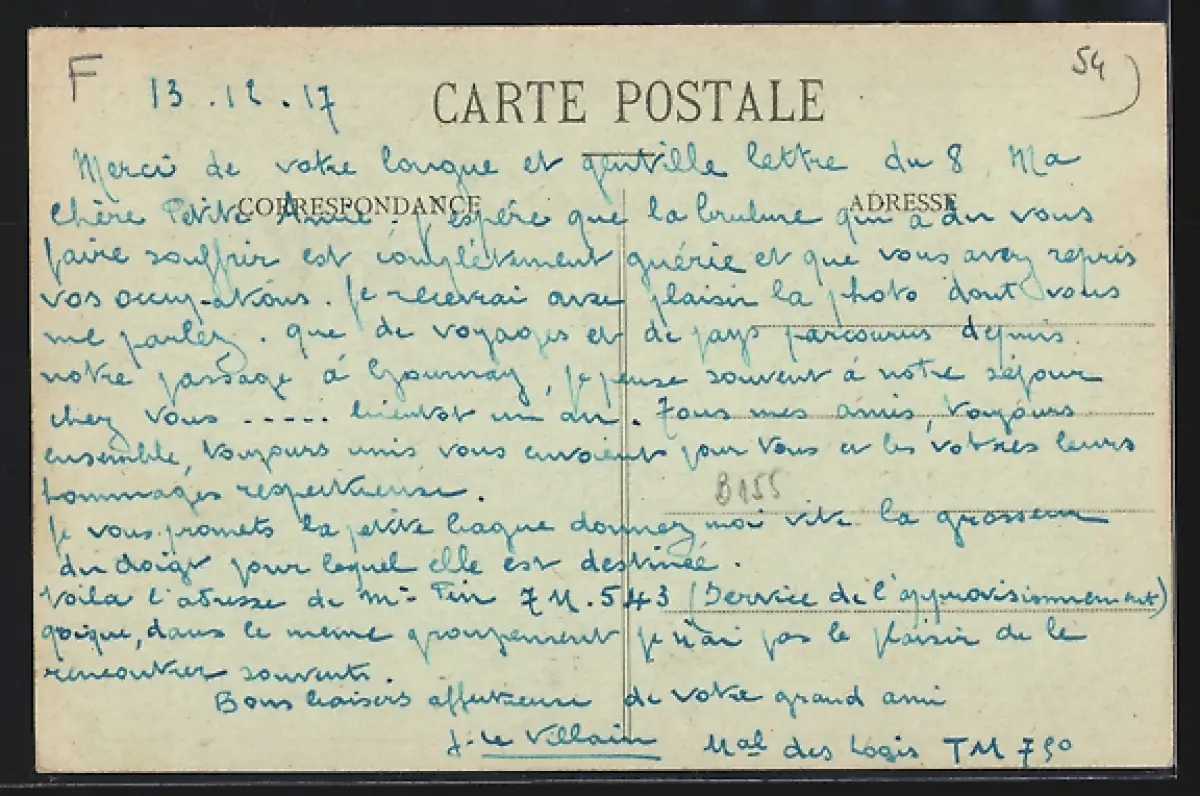 F
54
13.12.17
CARTE POSTALE
Merci de votre longue et gentille lettre du 8 Ma
CORRESPONDANCE
ADRESSE
chère Petite Amie. J'espère que la brulure qui a du vous
faire souffrir est complétement guérie et que vous avez repris
vos occupations. Je recevrai avec plaisir la photo dont vous
me parlez. que de voyages et de pays parcourus depuis
notre passage à Gournay, je pense souvent à notre séjour
chez vous ..... bientot un an. Tous mes amis, toujours
ensemble, toujours unis vous envoient pour vous et les votres leurs
hommages respectueux.
B155
Je vous promets la petite bague donnez moi vite la grosseur
du doigt pour lequel elle est destinée.
Voila l'adresse de Mr 543 (Service de l'approvisionnement)
qoique, dans le meme groupement je n'ai pas le plaisir de le
rencontrer souvent.
Bons baisers affectueux de votre grand ami
J. Le Villain Mal des Logis TM 790